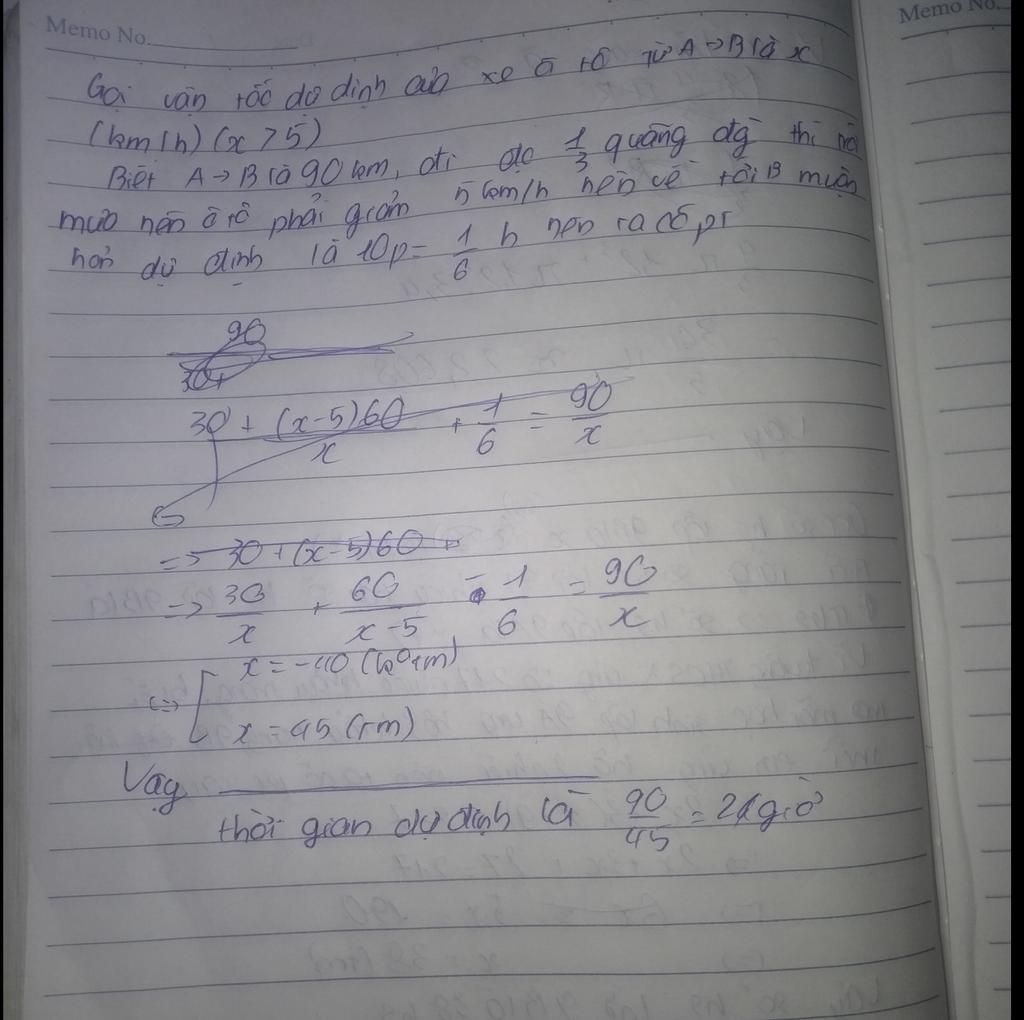 Memo No.
Memo No.
Gọi vận tốc dự định của xe ô tô từ A→B là x
(km/h) (x > 5)
Biết A→B là 90 km, đi đc 1/3 quãng đg thì trời
mưa nên ô tô phải giảm 5 km/h nên về tới B muộn
hơn dự định là 10p = 1/6 h nên ta có pt
90
30+
30 + (x-5)60/x + 1/6 = 90/x
=> 30 + (x-5)60 +
=> 30/x + 60/x-5 - 1/6 = 90/x
<=> [ x = -40 (kotm)
x = 45 (tm)
Vậy
thời gian dự định là 90/45 = 2 giờ